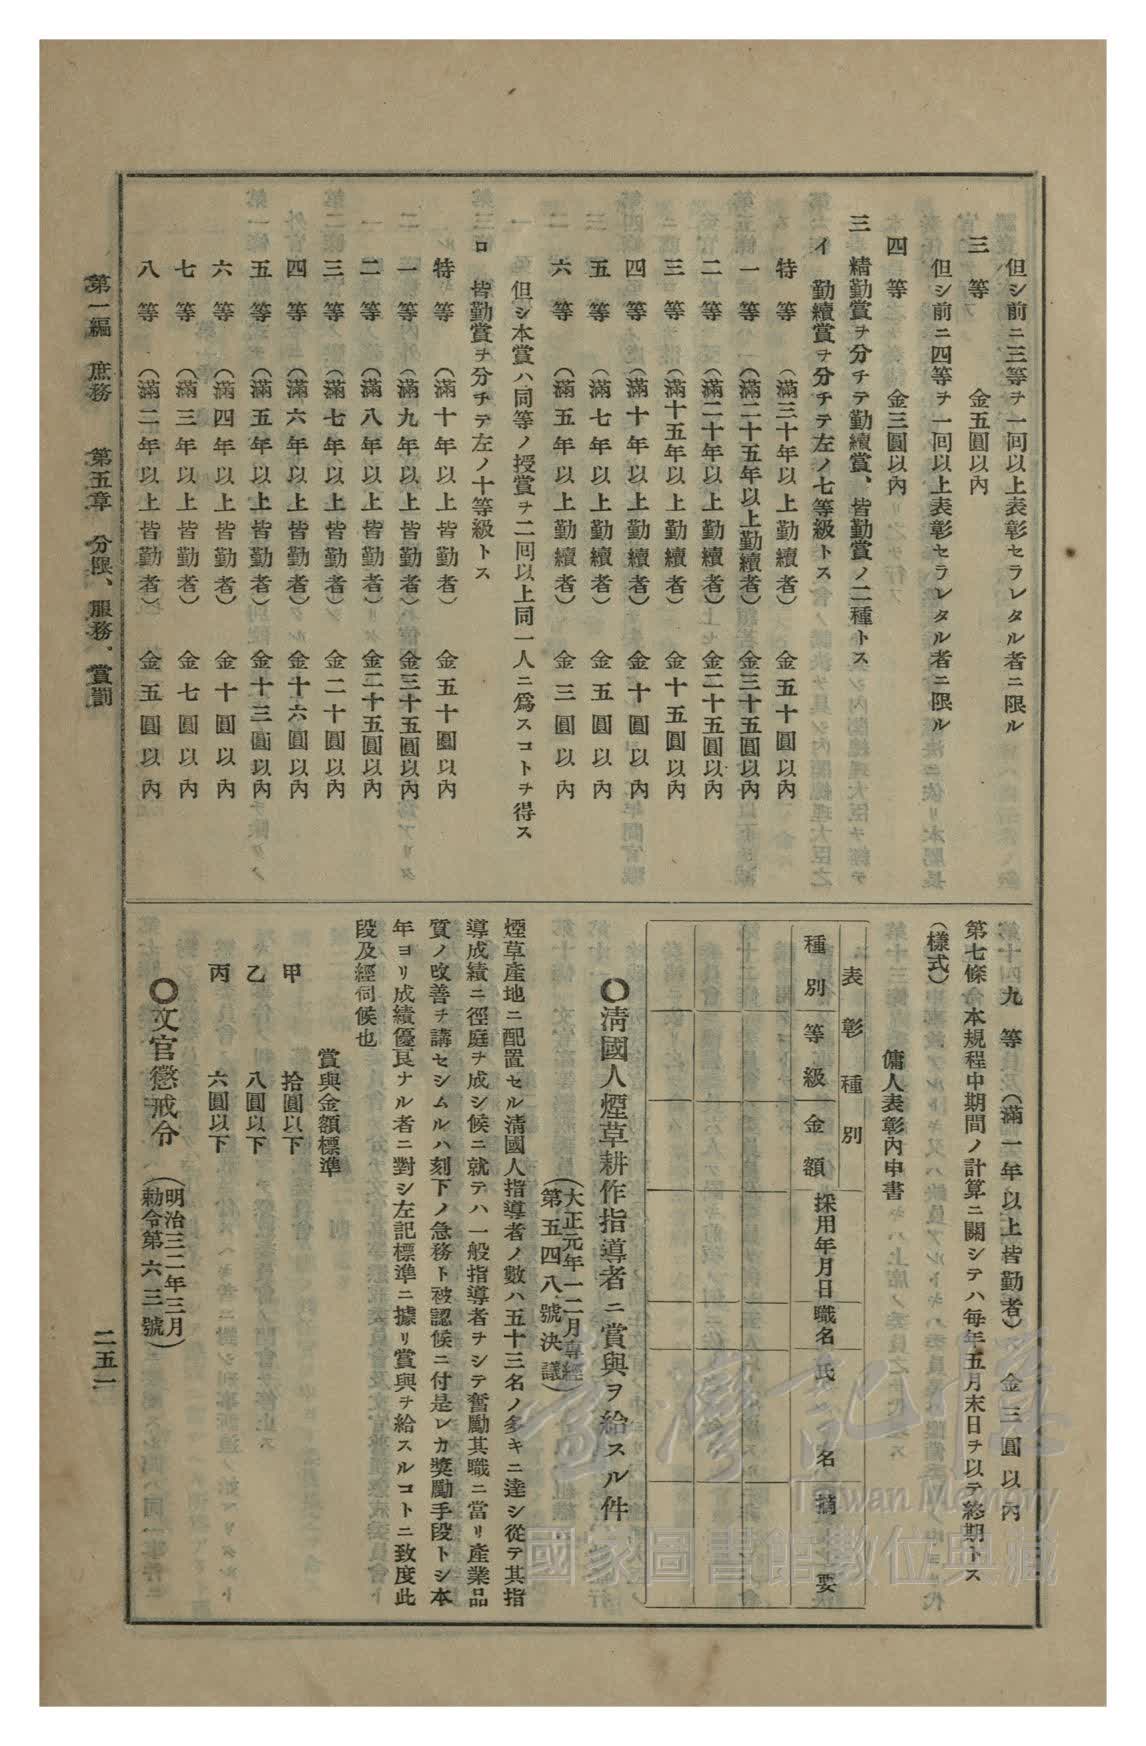 但シ前ニ三等ヲ一回以上表彰セラレタル者ニ限ル
三等 金五圓以內
但シ前ニ四等ヲ一回以上表彰セラレタル者ニ限ル
四等 金三圓以內
三 精勤賞ヲ分チテ勤續賞、皆勤賞ノ二種トス
イ 勤續賞ヲ分チテ左ノ七等級トス
特等 (滿三十年以上勤續者) 金五十圓以內
一等 (滿二十五年以上勤續者) 金三十五圓以內
二等 (滿二十年以上勤續者) 金二十五圓以內
三等 (滿十五年以上勤續者) 金十五圓以內
四等 (滿十年以上勤續者) 金十圓以內
五等 (滿七年以上勤續者) 金五圓以內
六等 (滿五年以上勤續者) 金三圓以內
但シ本賞ハ同等ノ授賞ヲ二回以上同一人ニ爲スコトヲ得ス
ロ 皆勤賞ヲ分チテ左ノ十等級トス
特等 (滿十年以上皆勤者) 金五十圓以內
一等 (滿九年以上皆勤者) 金三十五圓以內
二等 (滿八年以上皆勤者) 金二十五圓以內
三等 (滿七年以上皆勤者) 金二十圓以內
四等 (滿六年以上皆勤者) 金十六圓以內
五等 (滿五年以上皆勤者) 金十三圓以內
六等 (滿四年以上皆勤者) 金十圓以內
七等 (滿三年以上皆勤者) 金七圓以內
八等 (滿二年以上皆勤者) 金五圓以內
九等 (滿一年以上皆勤者) 金三圓以內
第七條 本規程中期間ノ計算ニ關シテハ每年五月末日ヲ以テ終期トス
(樣式)
傭人表彰內申書
表彰種別
種別 等級 金額 採用年月日 職名 氏名 摘要
○淸國人煙草耕作指導者ニ賞與ヲ給スル件
(大正元年一二月專經
第五四八號決議)
煙草產地ニ配置セル淸國人指導者ノ數ハ五十三名ノ多キニ達シ從テ其指
導成績ニ徑庭ヲ成シ候ニ就テハ一般指導者ヲシテ奮勵其職ニ當リ產業品
質ノ改善ヲ講セシムルハ刻下ノ急務ト被認候ニ付是レカ獎勵手段トシ本
年ヨリ成績優良ナル者ニ對シ左記標準ニ據リ賞與ヲ給スルコトニ致度此
段及經伺候也
賞與金額標準
甲 拾圓以下
乙 八圓以下
丙 六圓以下
○文官懲戒令 (明治三二年三月
勅令第六三號)
第一編 庶務 第五章 分限、服務、賞罰
二五一
臺灣記憶
Taiwan Memory
國家圖書館數位典藏